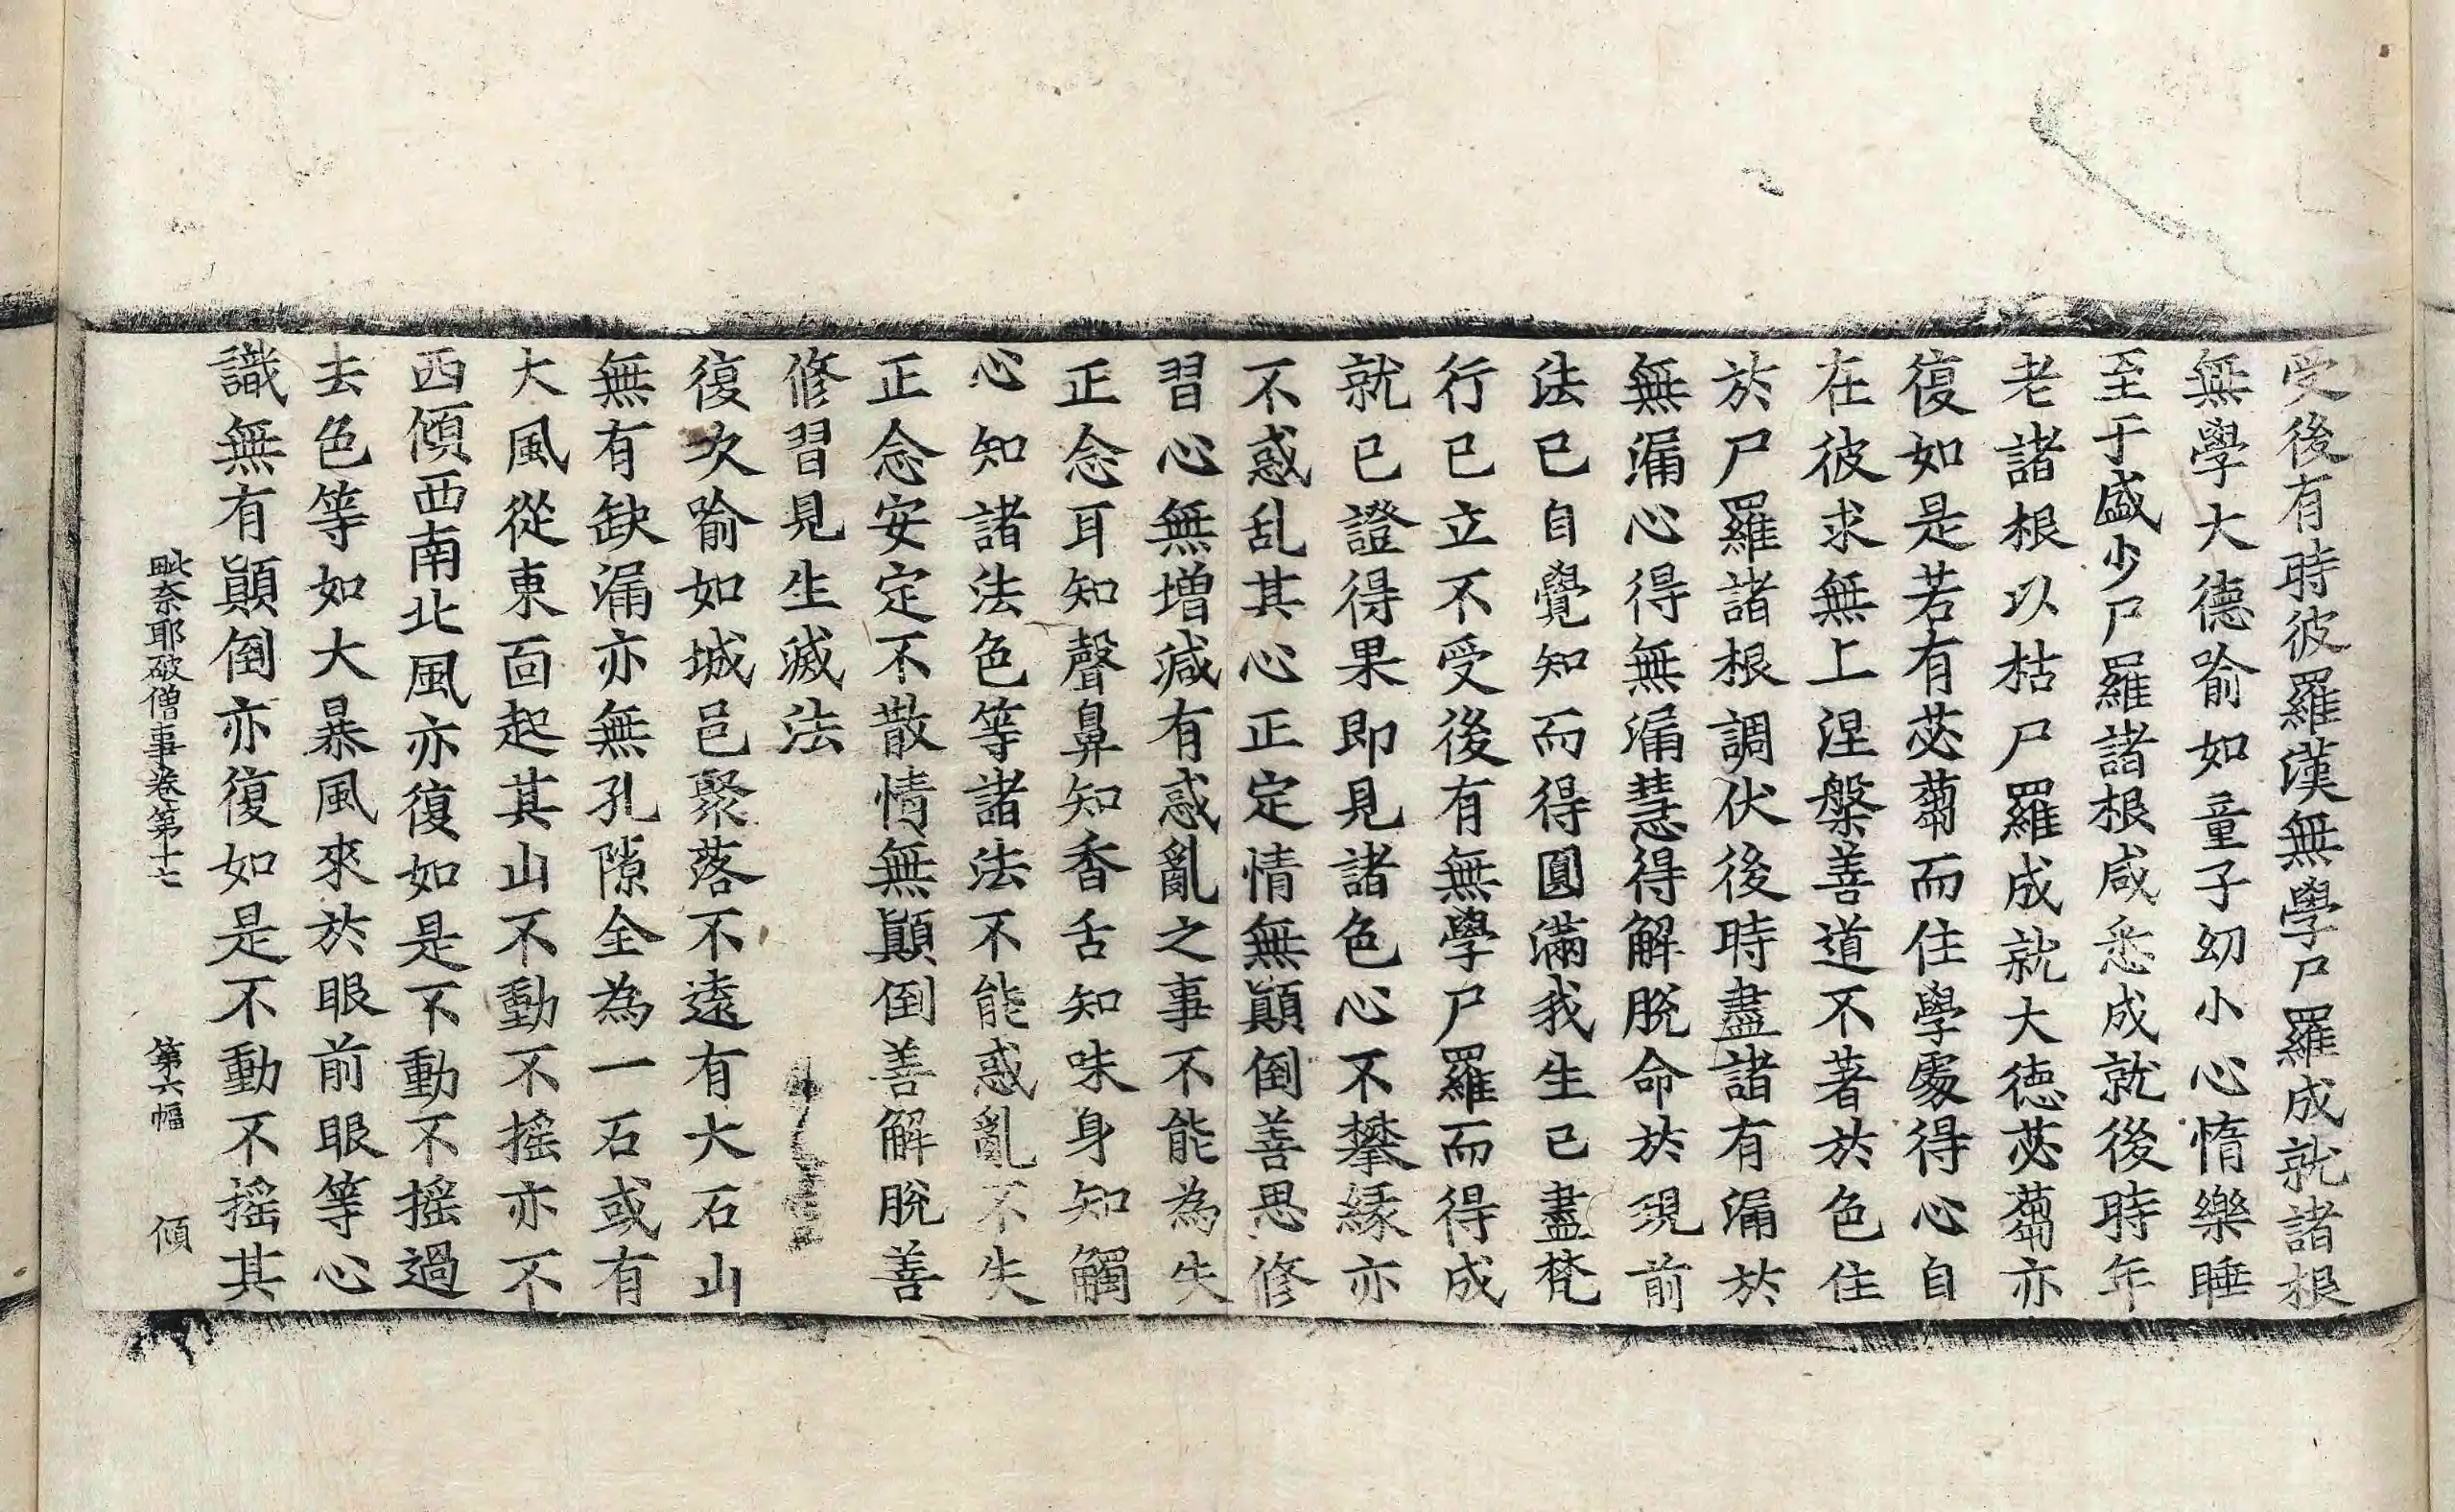 受後有時彼羅漢無學尸羅成就諸根
無學大德喻如童子幼小心惰樂睡
至于盛少尸羅諸根咸悉成就後時年
老諸根以枯尸羅成就大德苾蒭亦
復如是若有苾蒭而住學處得心自
在彼求無上涅槃善道不著於色住
於尸羅諸根調伏後時盡諸有漏於
無漏心得無漏慧得解脫命於現前
法已自覺知而得圓滿我生已盡梵
行已立不受後有無學尸羅而得成
就已證得果即見諸色心不攀緣亦
不惑乱其心正定情無顛倒善思修
習心無增減有惑亂之事不能為失
正念耳知聲鼻知香舌知味身知觸
心知諸法色等諸法不能惑亂不失
正念安定不散情無顛倒善解脫善
修習見生滅法
復次喻如城邑聚落不遠有大石山
無有缺漏亦無孔隙全為一石或有
大風從東面起其山不動不搖亦不
西傾西南北風亦復如是不動不搖過
去色等如大暴風來於眼前眼等心
識無有顛倒亦復如是不動不搖其
毗奈耶破僧事卷第十七 第六幅 傾